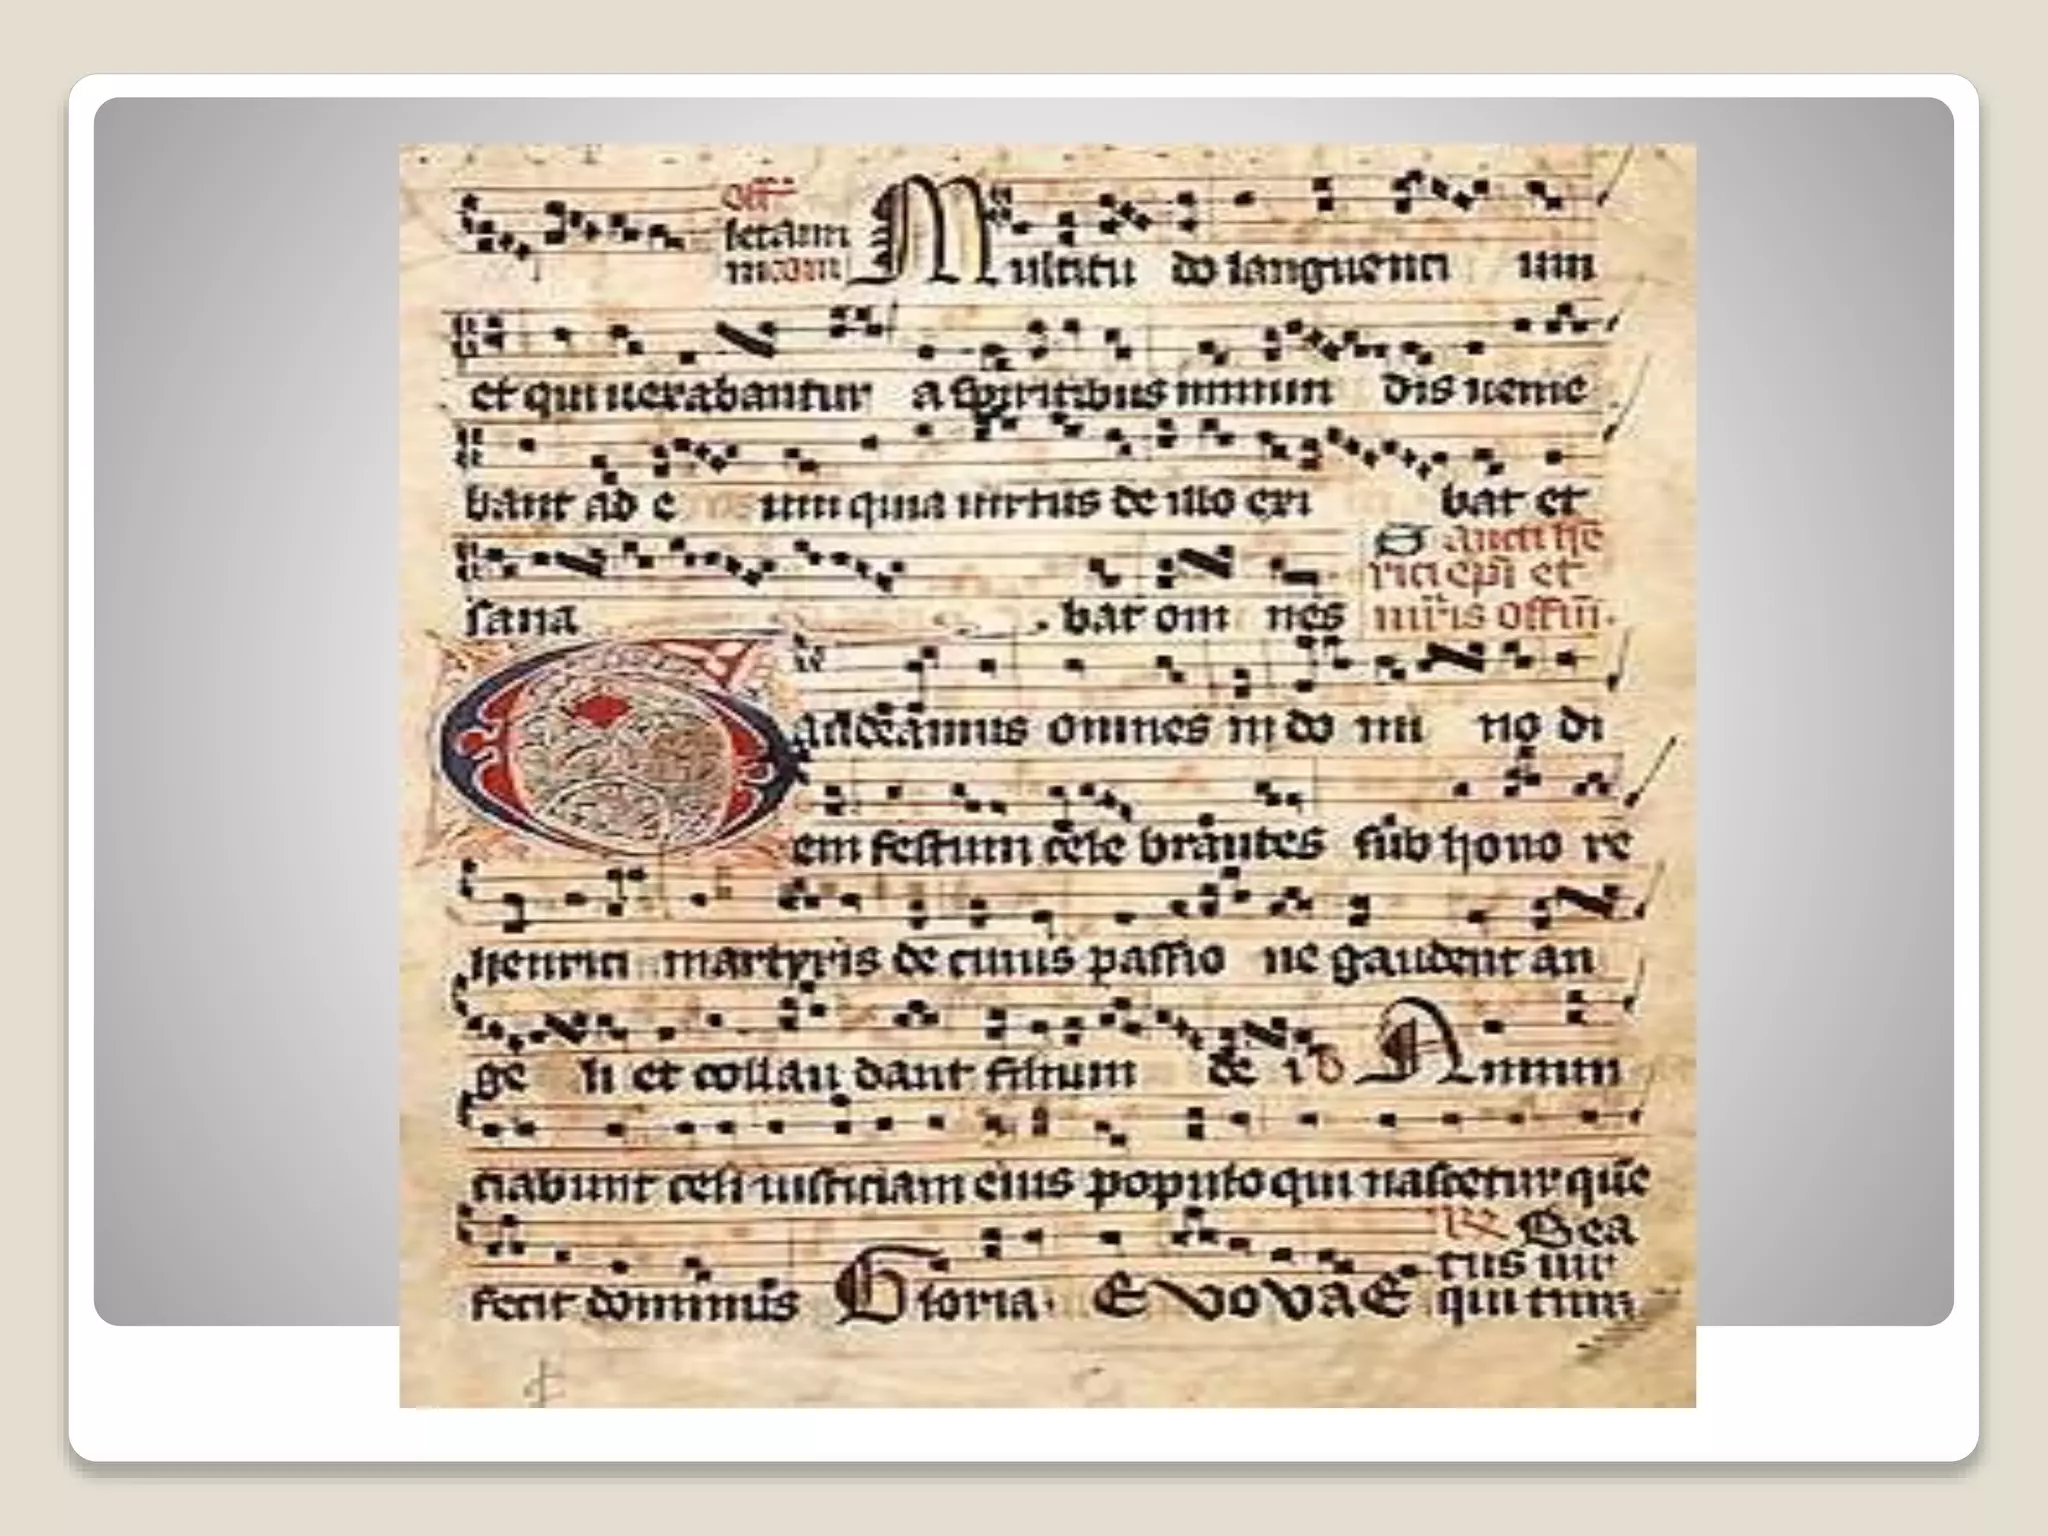 Off
letamini cam
M ultitu do languenti um
et qui uexabantur a spiritibus inmun dis uenie
bant ad e um quia uirtus de illo exi bat et
sana bat om nes
Sancti hē
rici epī et
mr̄is offm̄.
Gaudeamus omnes in do mi no di
em festum cele brantes sub hono re
henrici martyris de cuius passio ne gaudent an
ge li et collau dant filium de i Annun
ciabunt celi iusticiam eius populo qui nascetur quē
fecit dominus Gloria. EVOVAE
Bea
tus uir
qui tim